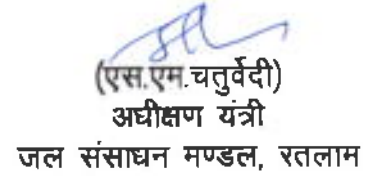 (एस.एम.चतुर्वेदी)
अधीक्षण यंत्री
जल संसाधन मण्डल, रतलाम